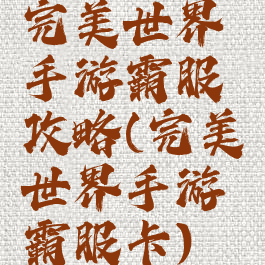 完美世界
手游霸服
攻略(完美
世界手游
霸服卡)